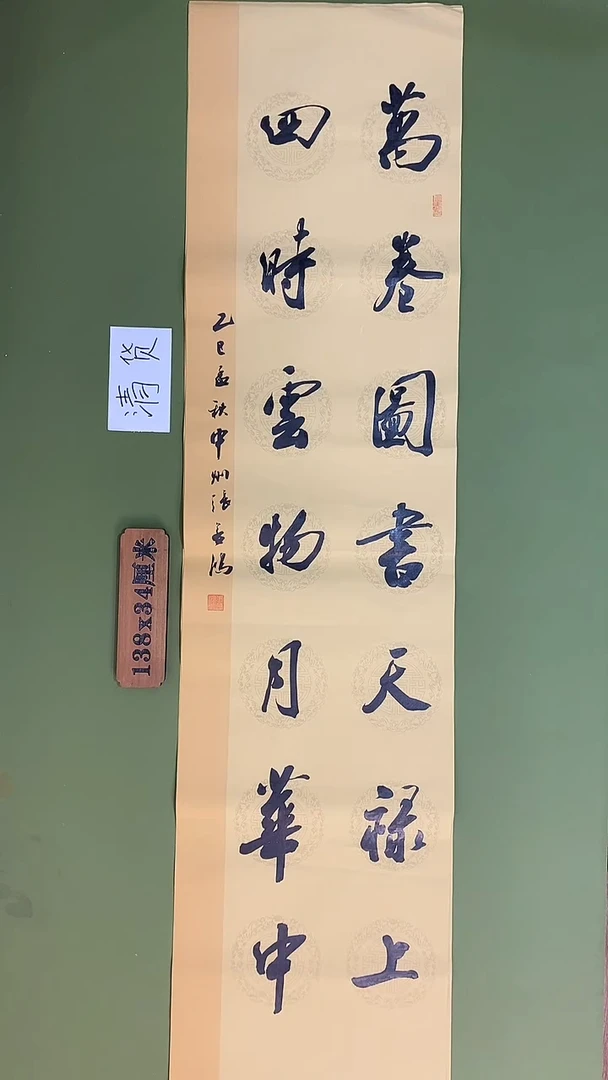 萬卷圖書天禄上
四時雲物月華中
乙巳孟秋中州張鴻
清货
138x34厘米